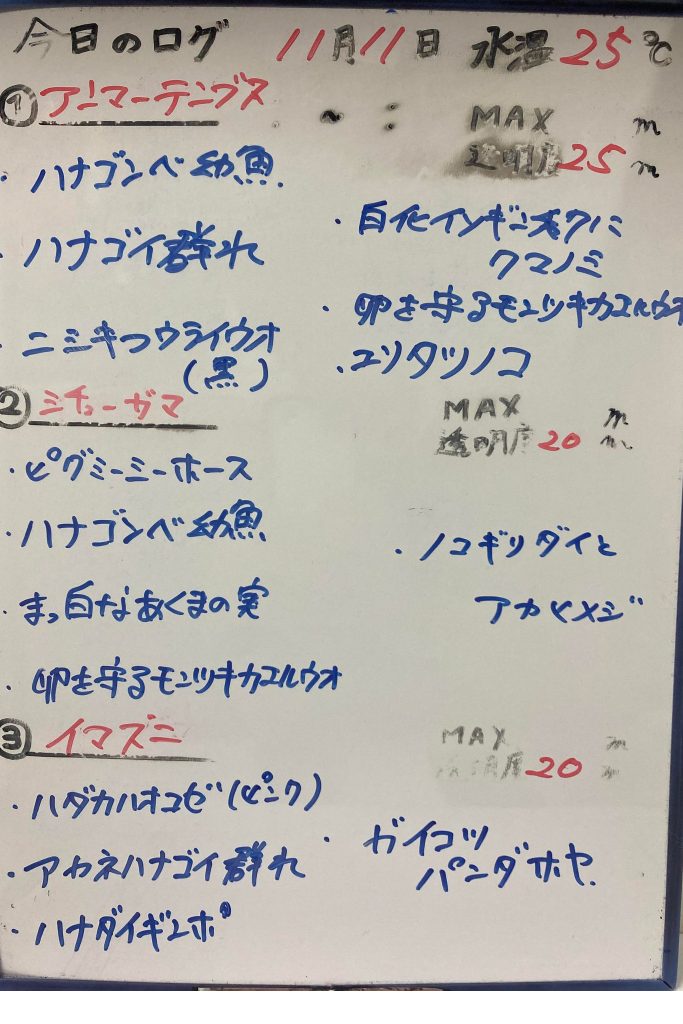 今日のログ 11月11日 水温25℃
① アーニマーテンブス
~ : MAX m
透明度25m
・ハナゴンベ幼魚
・ハナゴイ群れ
・ニシキフウライウオ
(黒)
・白化イソギンチャクに
クマノミ
・卵を守るモンツキカエルウオ
・ユリタツノコ
② ミチューガマ
MAX m
透明度20m
・ピグミーシーホース
・ハナゴンベ幼魚
・まっ白なあくまの実
・卵を守るモンツキカエルウオ
・ノコギリダイと
アカヒメジ
③ イマズニ
MAX m
透明度20m
・ハダカハオコゼ(ピンク)
・アカネハナゴイ群れ
・ハナダイギンポ
・ガイコツ
パンダホヤ